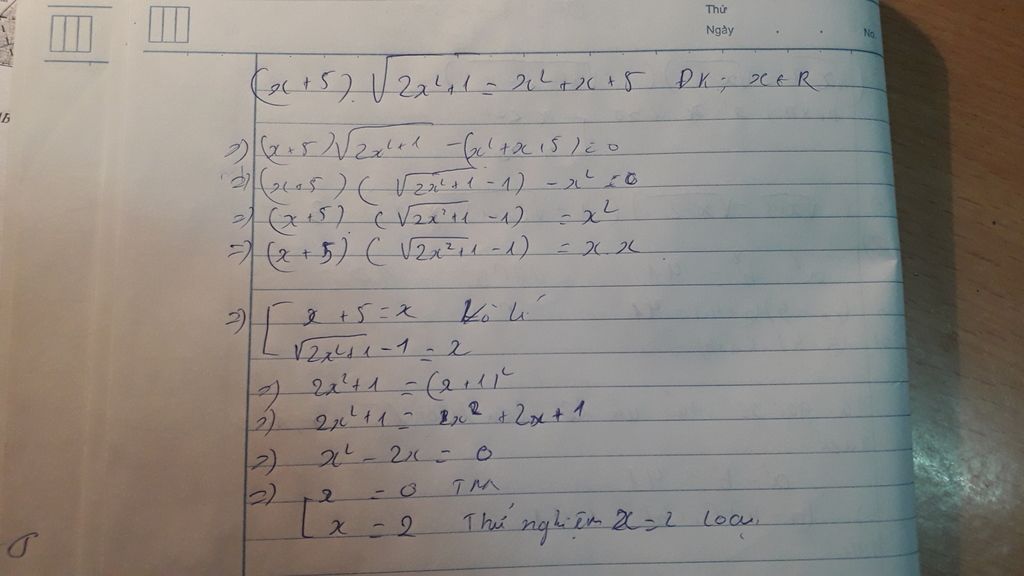 Thứ
Ngày . . No.
(x+5).√(2x²+1) = x²+x+5 ĐK: x∈R
=> (x+5)√(2x²+1) -(x²+x+5)=0
=> (x+5) (√(2x²+1) -1) -x²=0
=> (x+5) (√(2x²+1) -1) = x²
=> (x+5) (√(2x²+1) -1) = x.x
=> [ x+5=x Vô lí
√(2x²+1) -1 = x
=> 2x²+1 = (x+1)²
=> 2x²+1 = x²+2x+1
=> x²-2x = 0
=> [ x = 0 TM
x = 2 Thử nghiệm x=2 loại